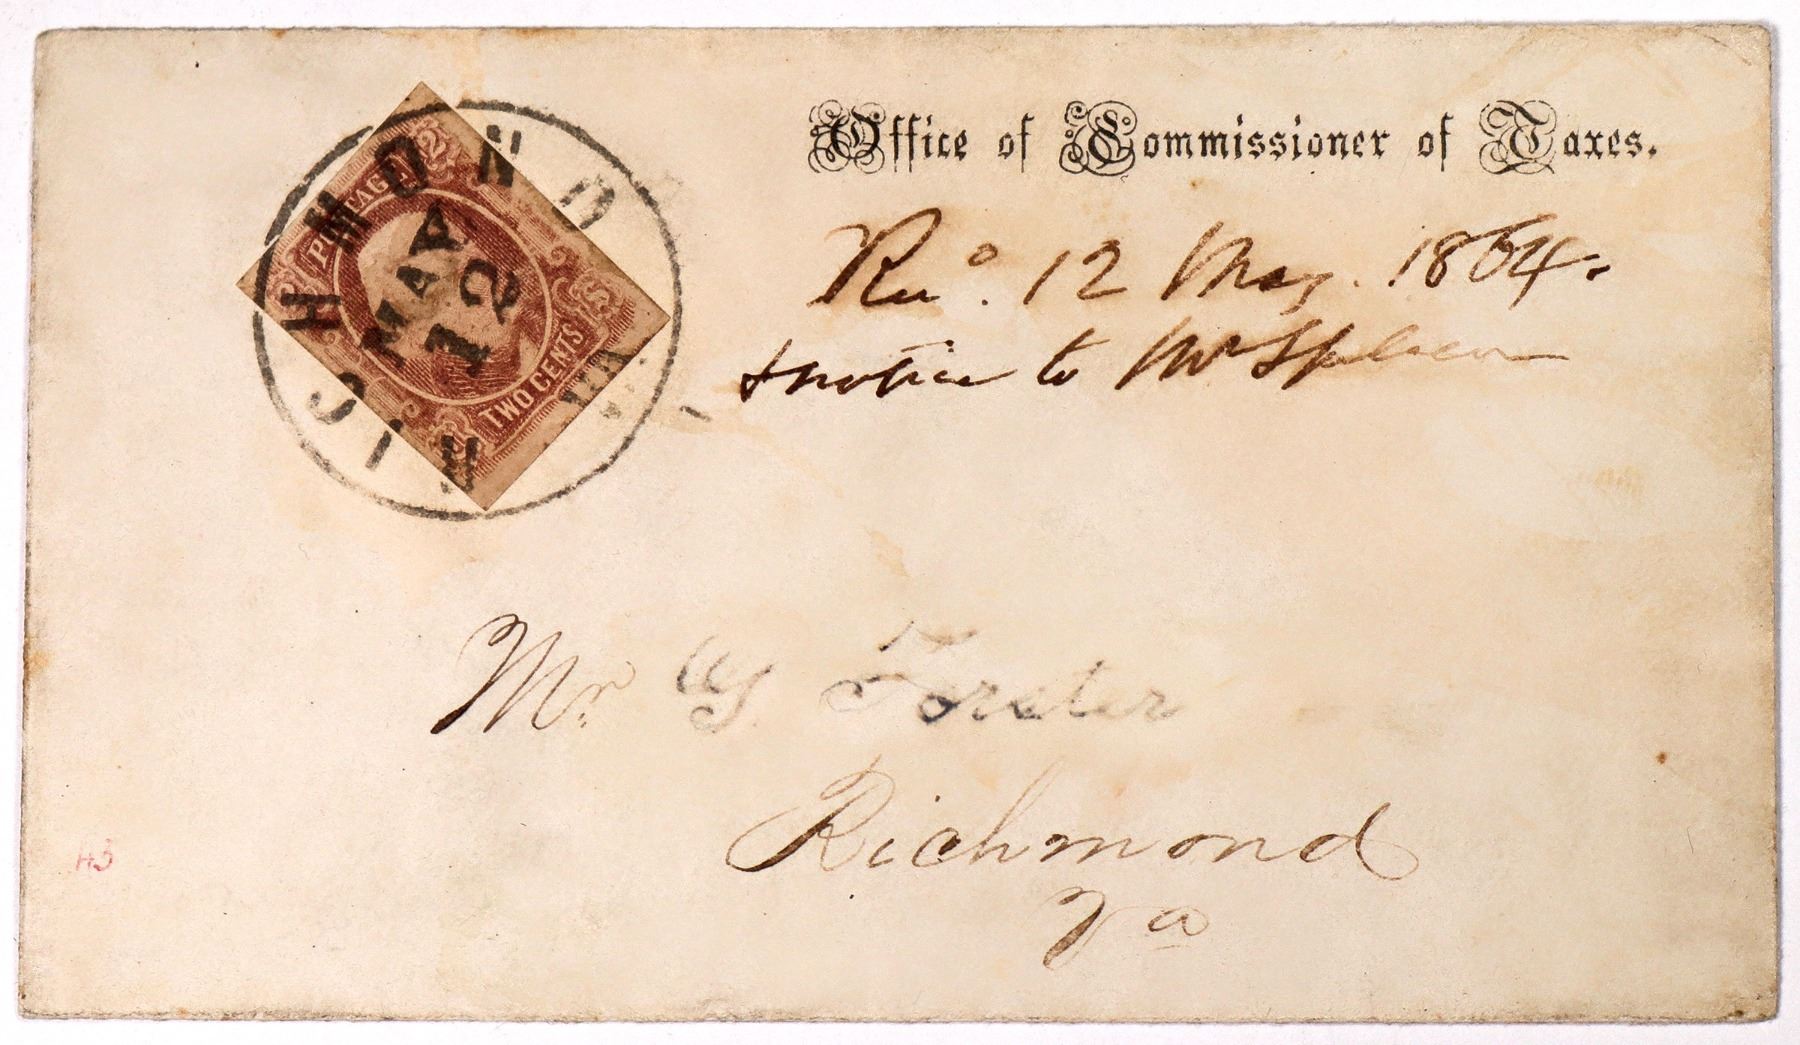 POSTAGE
TWO CENTS
RICHMOND VA.
MAY
12
Office of Commissioner of Taxes.
Recd. 12 May. 1864.
& notice to Mr
Mr
Richmond
Va